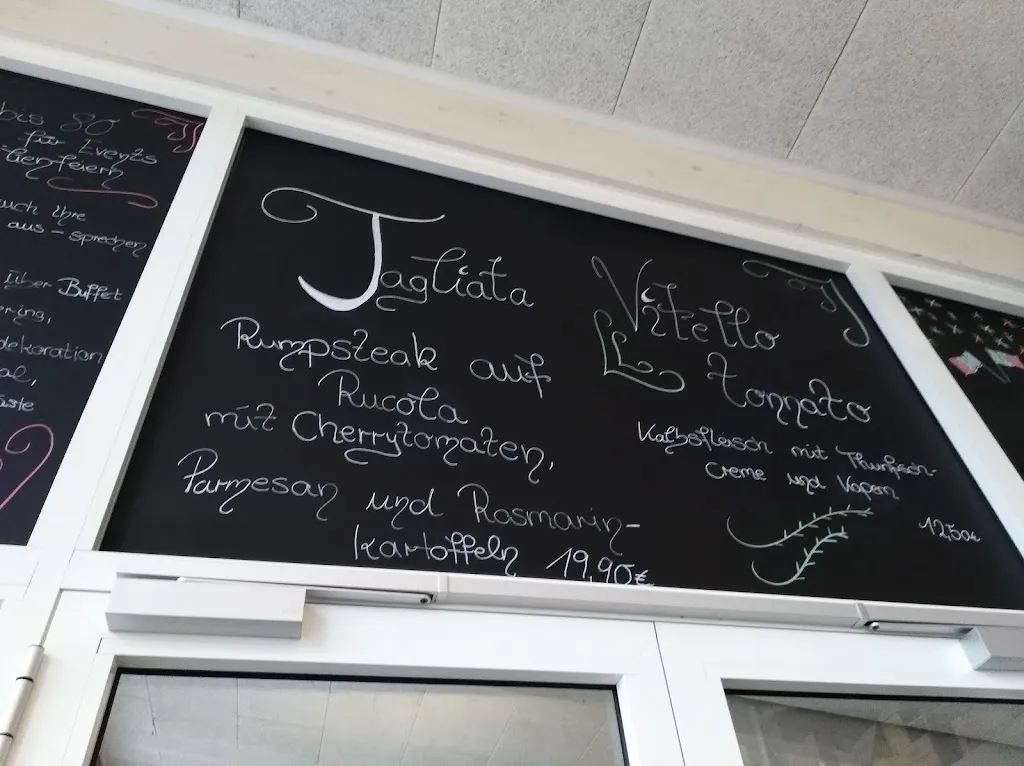 bis 80
für Events
uch ihre
aus-sprechen
über Buffet
ering,
dekoration
al,
Tagliata
Rumpsteak auf
Rucola
mit Cherrytomaten,
Parmesan und Rosmarin-
kartoffeln 19,90€
Vitello
tonnato
Kalbsfleisch mit Thunfisch-
creme und Kapern
12,50€